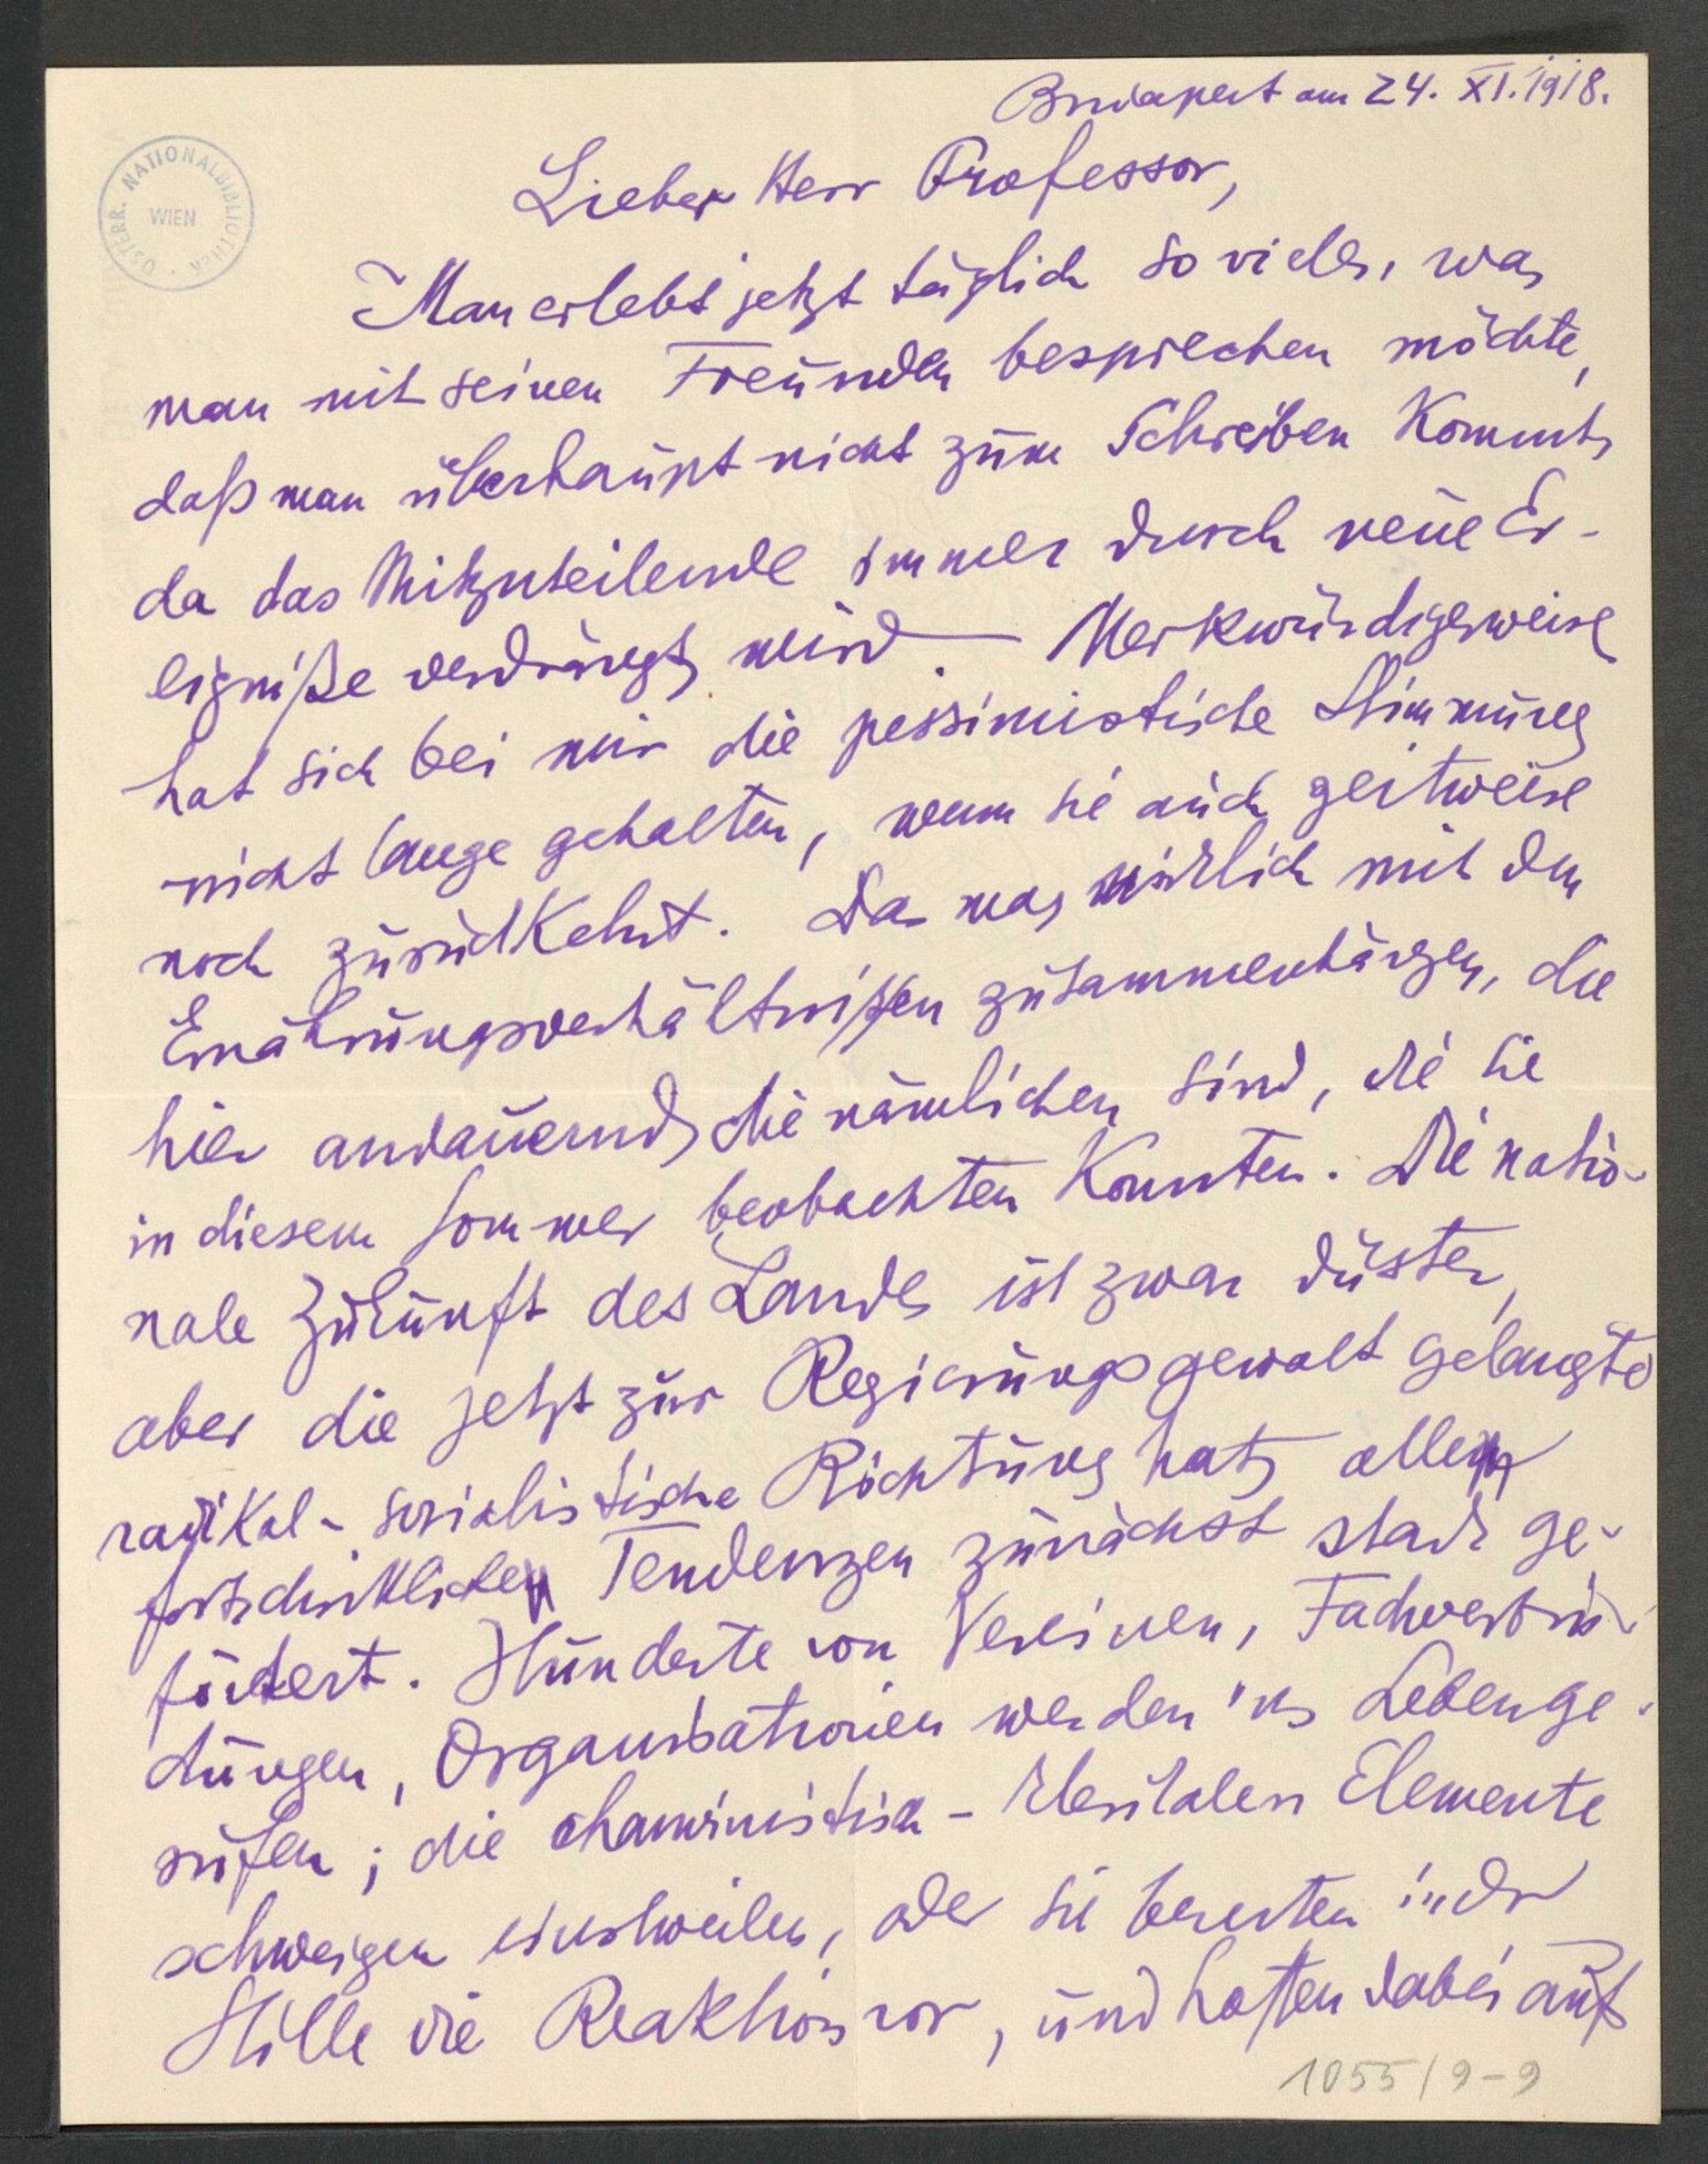 Budapest am 24. XI. 1918.
ÖSTERR. NATIONALBIBLIOTHEK
WIEN
Lieber Herr Professor,
Man erlebt jetzt täglich so vieles, was
man mit seinen Freunden besprechen möchte,
daß man überhaupt nicht zum Schreiben kommt,
da das Mitzuteilende immer durch neue Er-
eigniße verdrängt wird. — Merkwürdigerweise
hat sich bei mir die pessimistische Stimmung
nicht lange gehalten, wenn sie auch zeitweise
noch zurückkehrt. Das mag wirklich mit den
Ernährungsverhältnißen zusammenhängen, die
hier andauernd die nämlichen sind, die Sie
in diesem Sommer beobachten konnten. Die natio-
nale Zukunft des Landes ist zwar düster,
aber die jetzt zur Regierungsgewalt gelangte
radikal-sozialistische Richtung hat allen
fortschrittlichen Tendenzen zunächst stark ge-
fördert. Hunderte von Vereinen, Fachverbin-
dungen, Organisationen werden ins Leben ge-
rufen; die chauvinistisch-klerikalen Elemente
schweigen einstweilen, oder sie bereiten in der
Stille die Reaktion vor, und hoffen dabei auf
1055/9-9